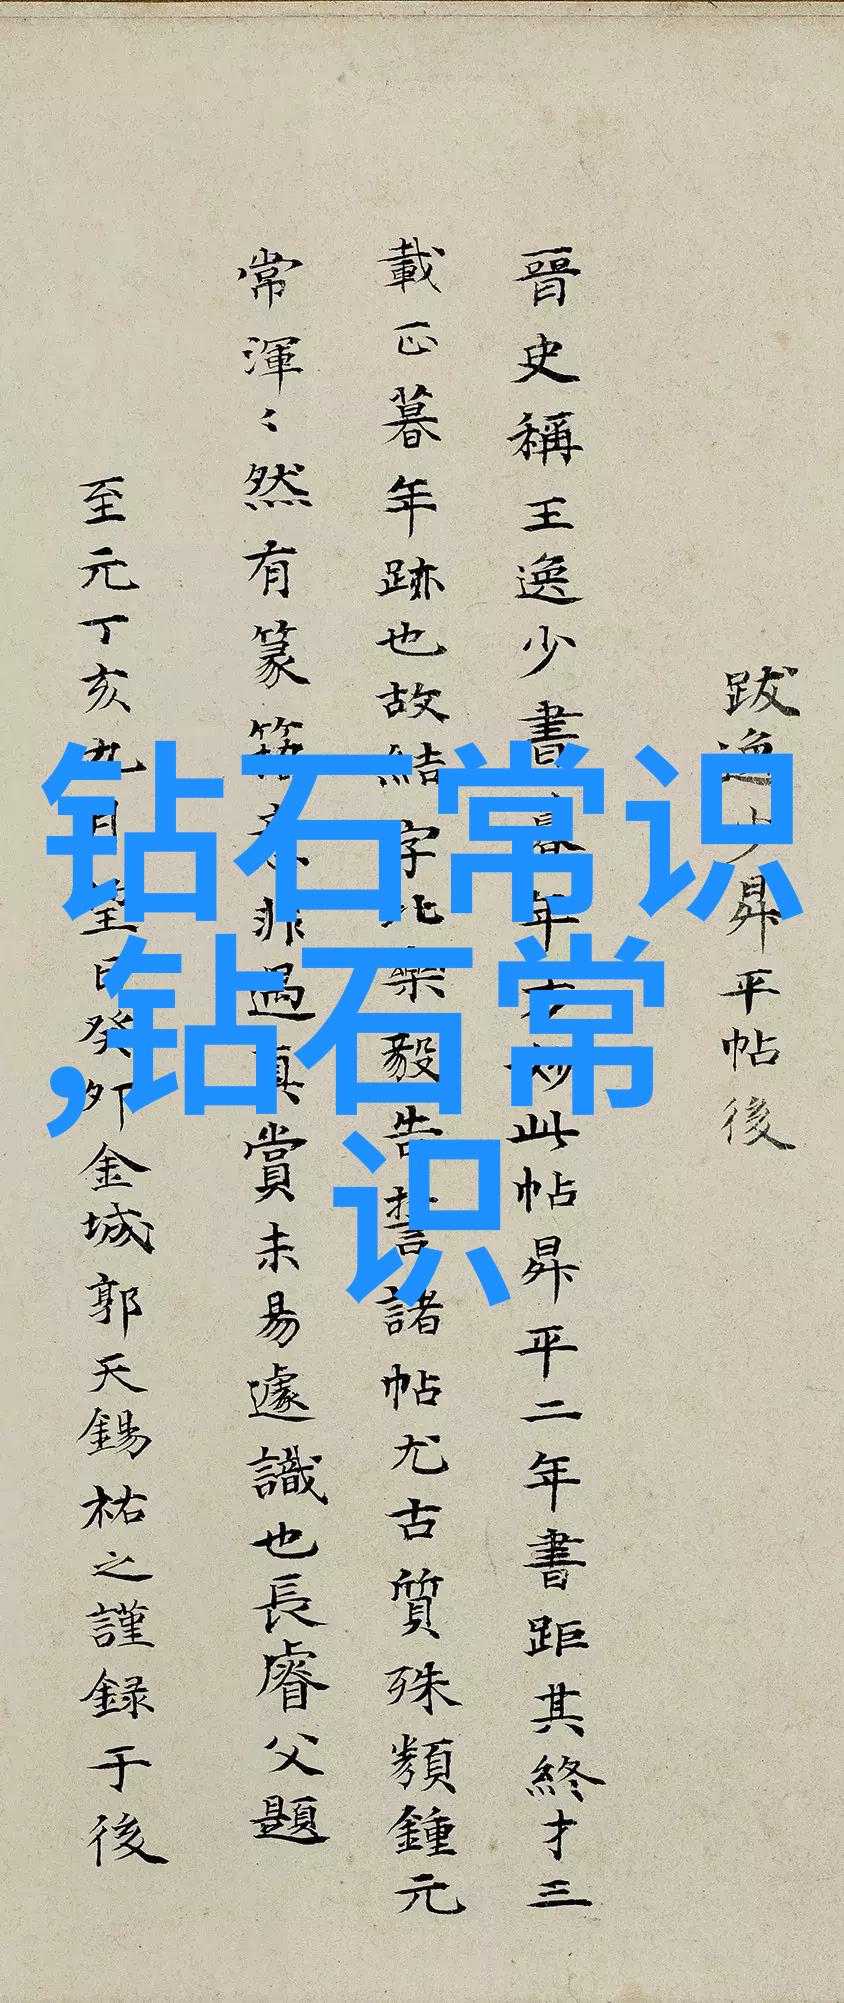 跋逸少昇平帖後
晉史稱王逸少書暮年方妙此帖昇平二年書距其終才三
載正暮年跡也故結字比樂毅告誓諸帖尤古質殊類鍾元
常渾〻然有篆籀意非遇真賞未易遽識也長睿父題
至元丁亥九月望日癸卯金城郭天錫祐之謹録于後
钻石常识
,钻石常
识